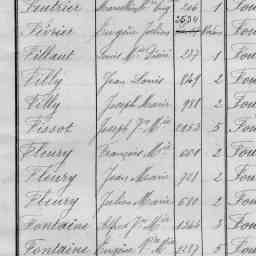 Feutrier 206 1
2534
Février Eugène Julien 1 Fou
Fillaut Louis Mie 237 1 Fou
Filly Jean Louis 849 2 Fou
Filly Joseph Marie 981 2 Fou
Fissot Joseph Fs Mie 2053 5 Fou
Fleury François Mie 601 2 Fou
Fleury Jean Marie 721 2 Fou
Fleury Julien Marie 680 2 Fou
Fontaine Alfred Fs Mie 1266 3 Fou
Fontaine Eugène Fs Mie 2257 5 Fou